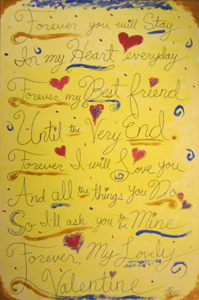 Forever you will Stay
In my Heart everyday
Forever my Best friend
Until the Very End
Forever I will Love you
And all the things you Do
So I'll ask you to be Mine
Forever My Lovely
Valentine